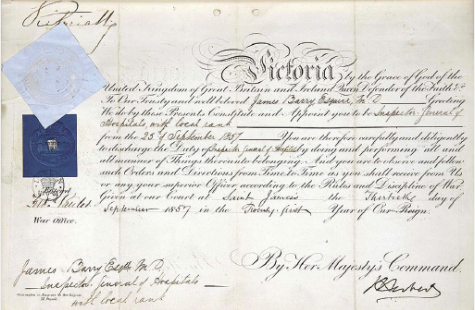 Victoria
Victoria by the Grace of God of the
United Kingdom of Great Britain and Ireland Queen Defender of the Faith &c
To Our Trusty and well beloved James Barry Esquire M.D. Greeting
We do by these Presents Constitute and Appoint you to be Inspector General of
Hospitals with local rank
from the 25 of September 1857 You are therefore carefully and diligently
to discharge the Duty of Inspector General of Hospitals by doing and performing all and
all manner of Things thereunto belonging And you are to observe and follow
such Orders and Directions from Time to Time as you shall receive from Us
or any your superior Officer according to the Rules and Discipline of War
Given at our Court at Saint James's the Thirtieth day of
September 1857 in the Twenty first Year of Our Reign.
War Office.
By Her Majesty's Command.
James Barry Esqre M.D.
Inspector General of Hospitals
with local rank